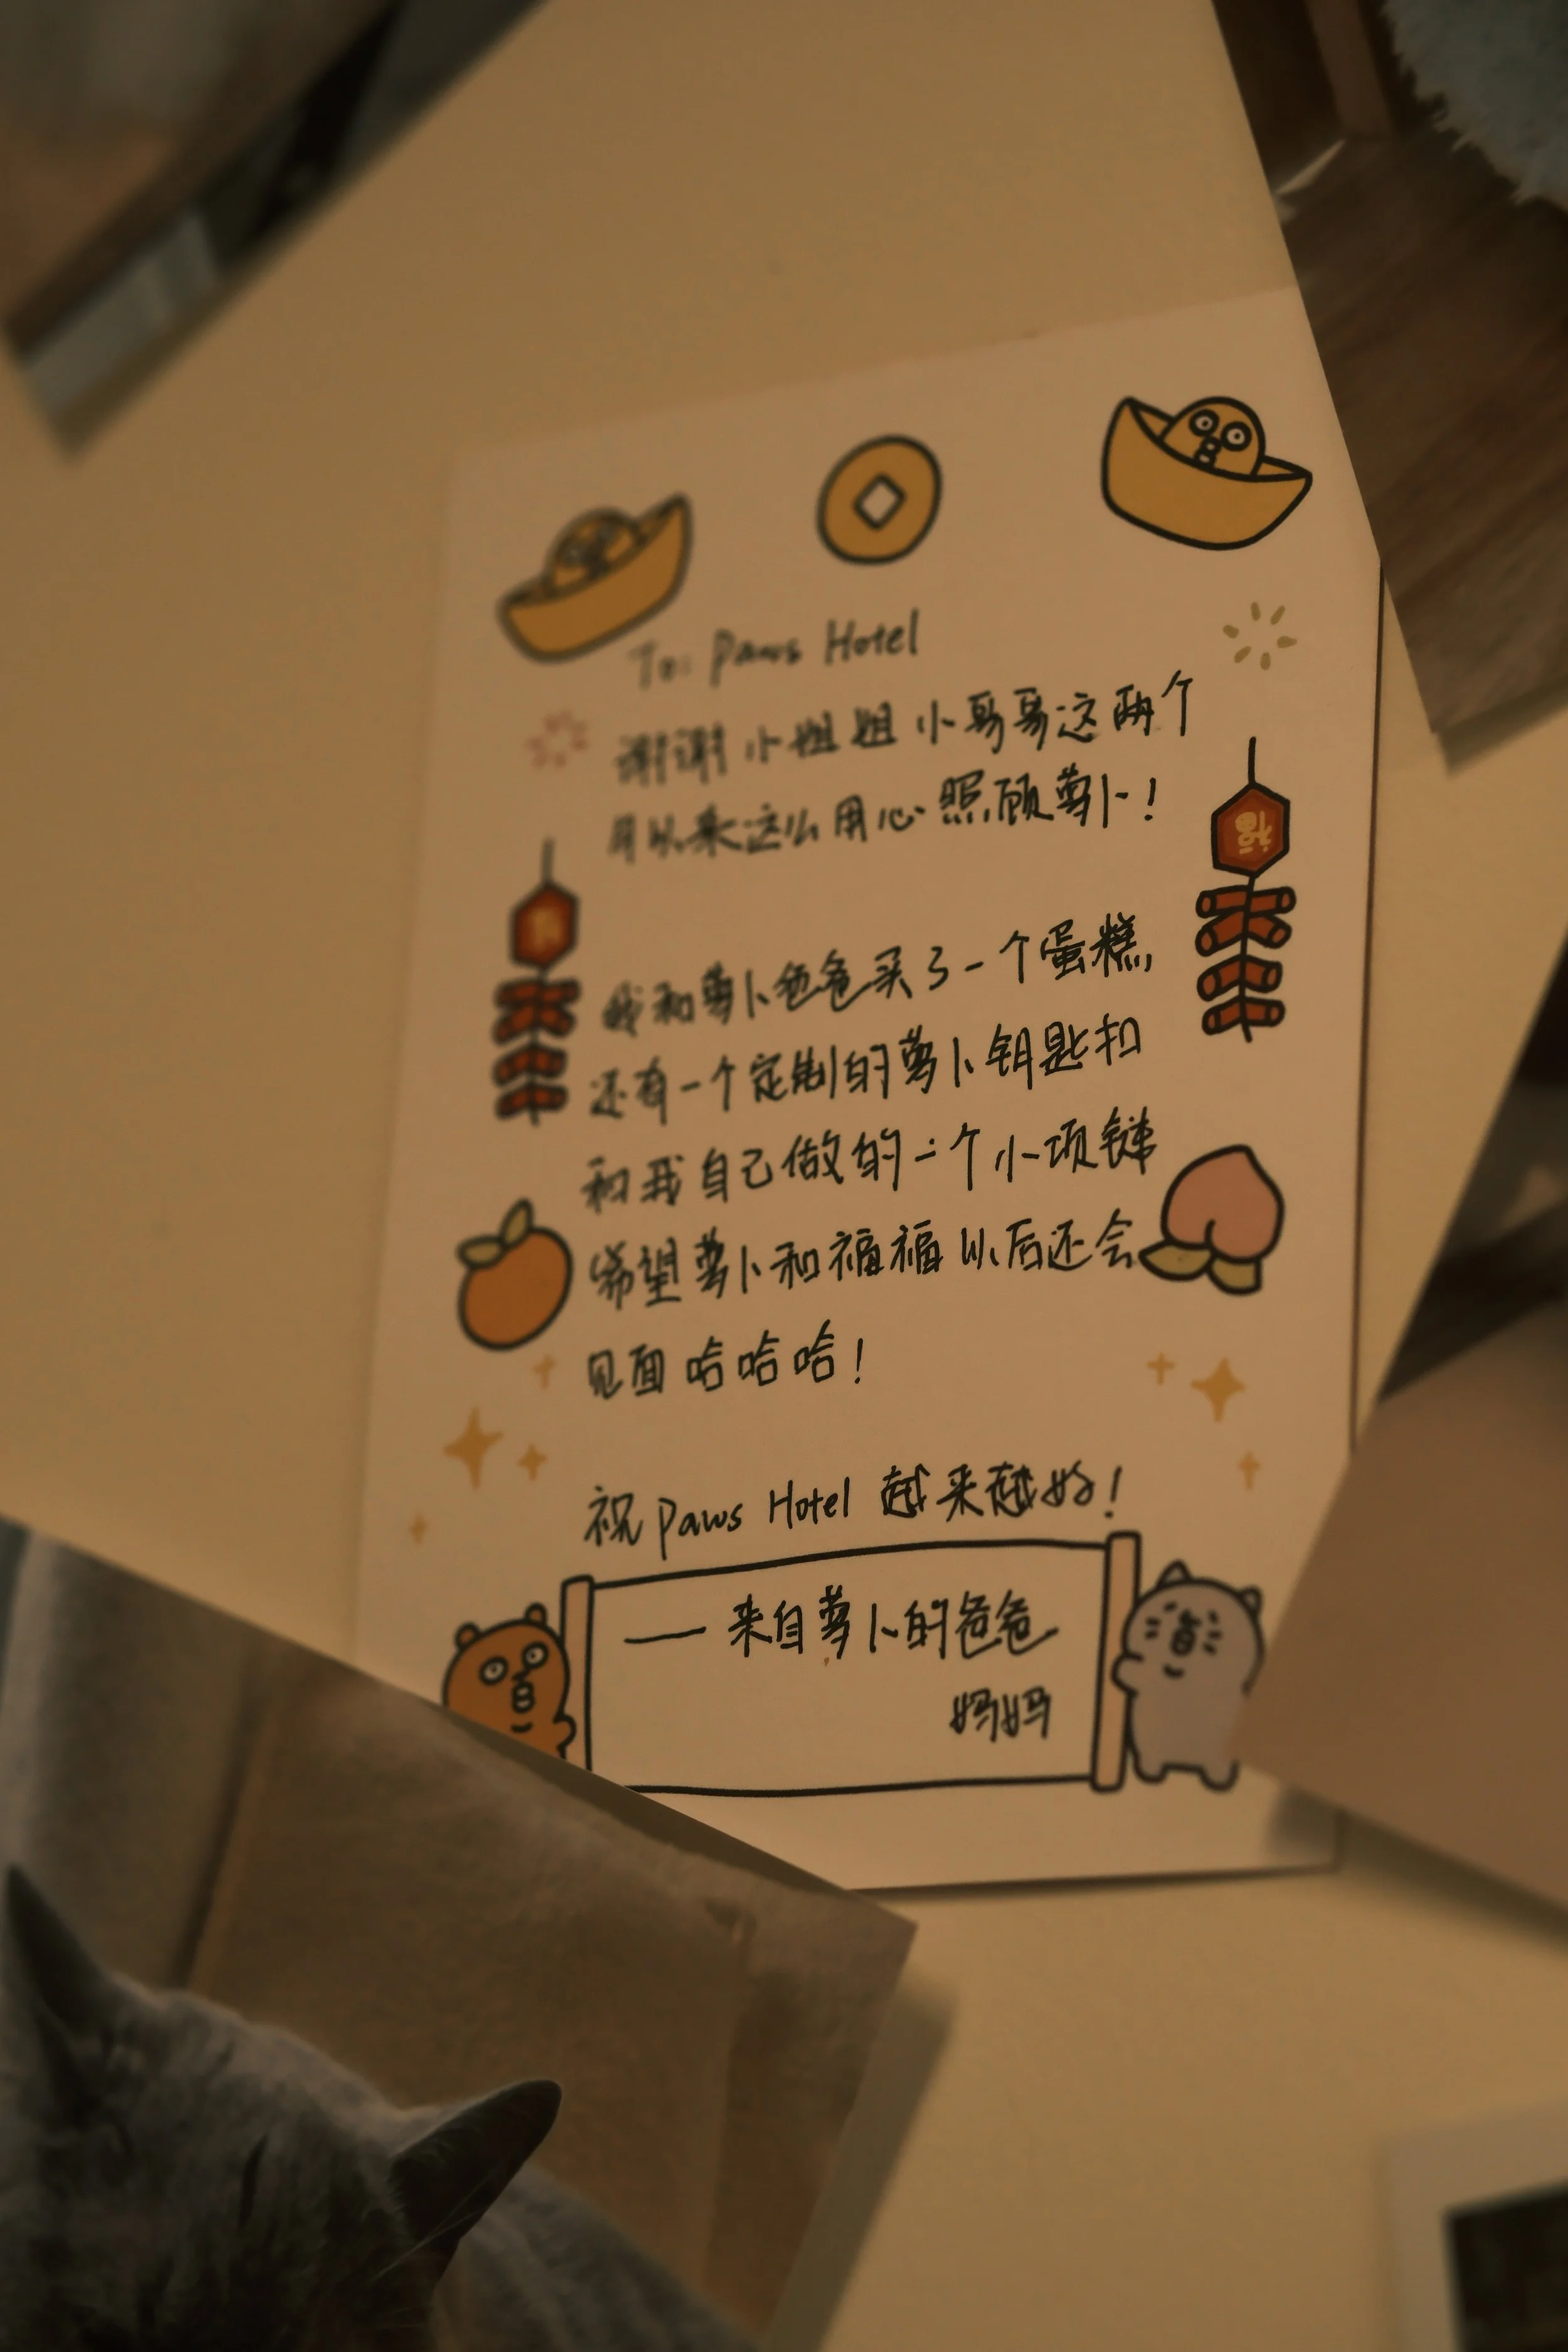 To: Paws Hotel
谢谢小姐姐小哥哥这两个
月以来这么用心照顾萝卜!
福
我和萝卜爸爸买了一个蛋糕,
还有一个定制的萝卜钥匙扣
和我自己做的一个小项链
希望萝卜和福福以后还会
见面哈哈哈!
祝 Paws Hotel 越来越好!
—— 来自萝卜的爸爸
妈妈